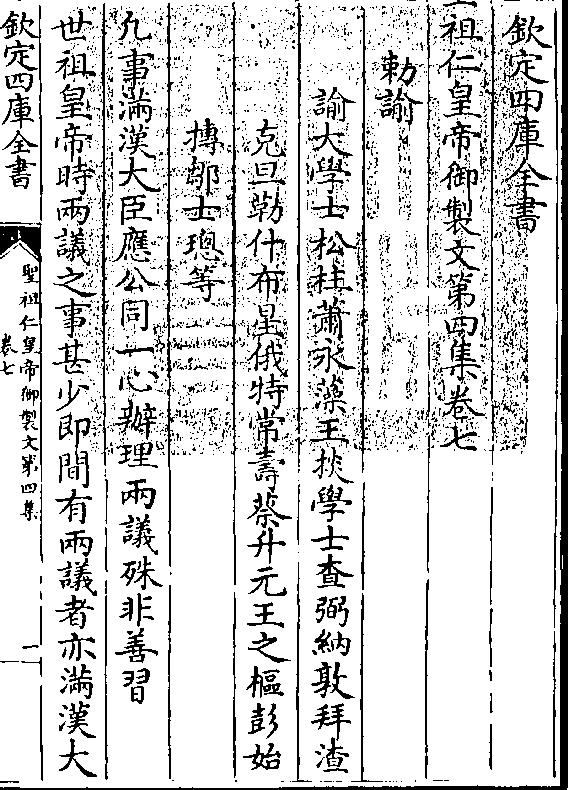 欽定四庫全書
聖祖仁皇帝御製文第四集卷七
勅諭
諭大學士松柱蕭永藻王掞學士查弼納敦拜渣
克旦勒什布星俄特常壽蔡升元王之樞彭始
摶鄒士璁等
凢事滿漢大臣應公同一心辦理兩議殊非善習
世祖皇帝時兩議之事甚少即間有兩議者亦滿漢大
欽定四庫全書
聖祖仁皇帝御製文第四集
卷七
一